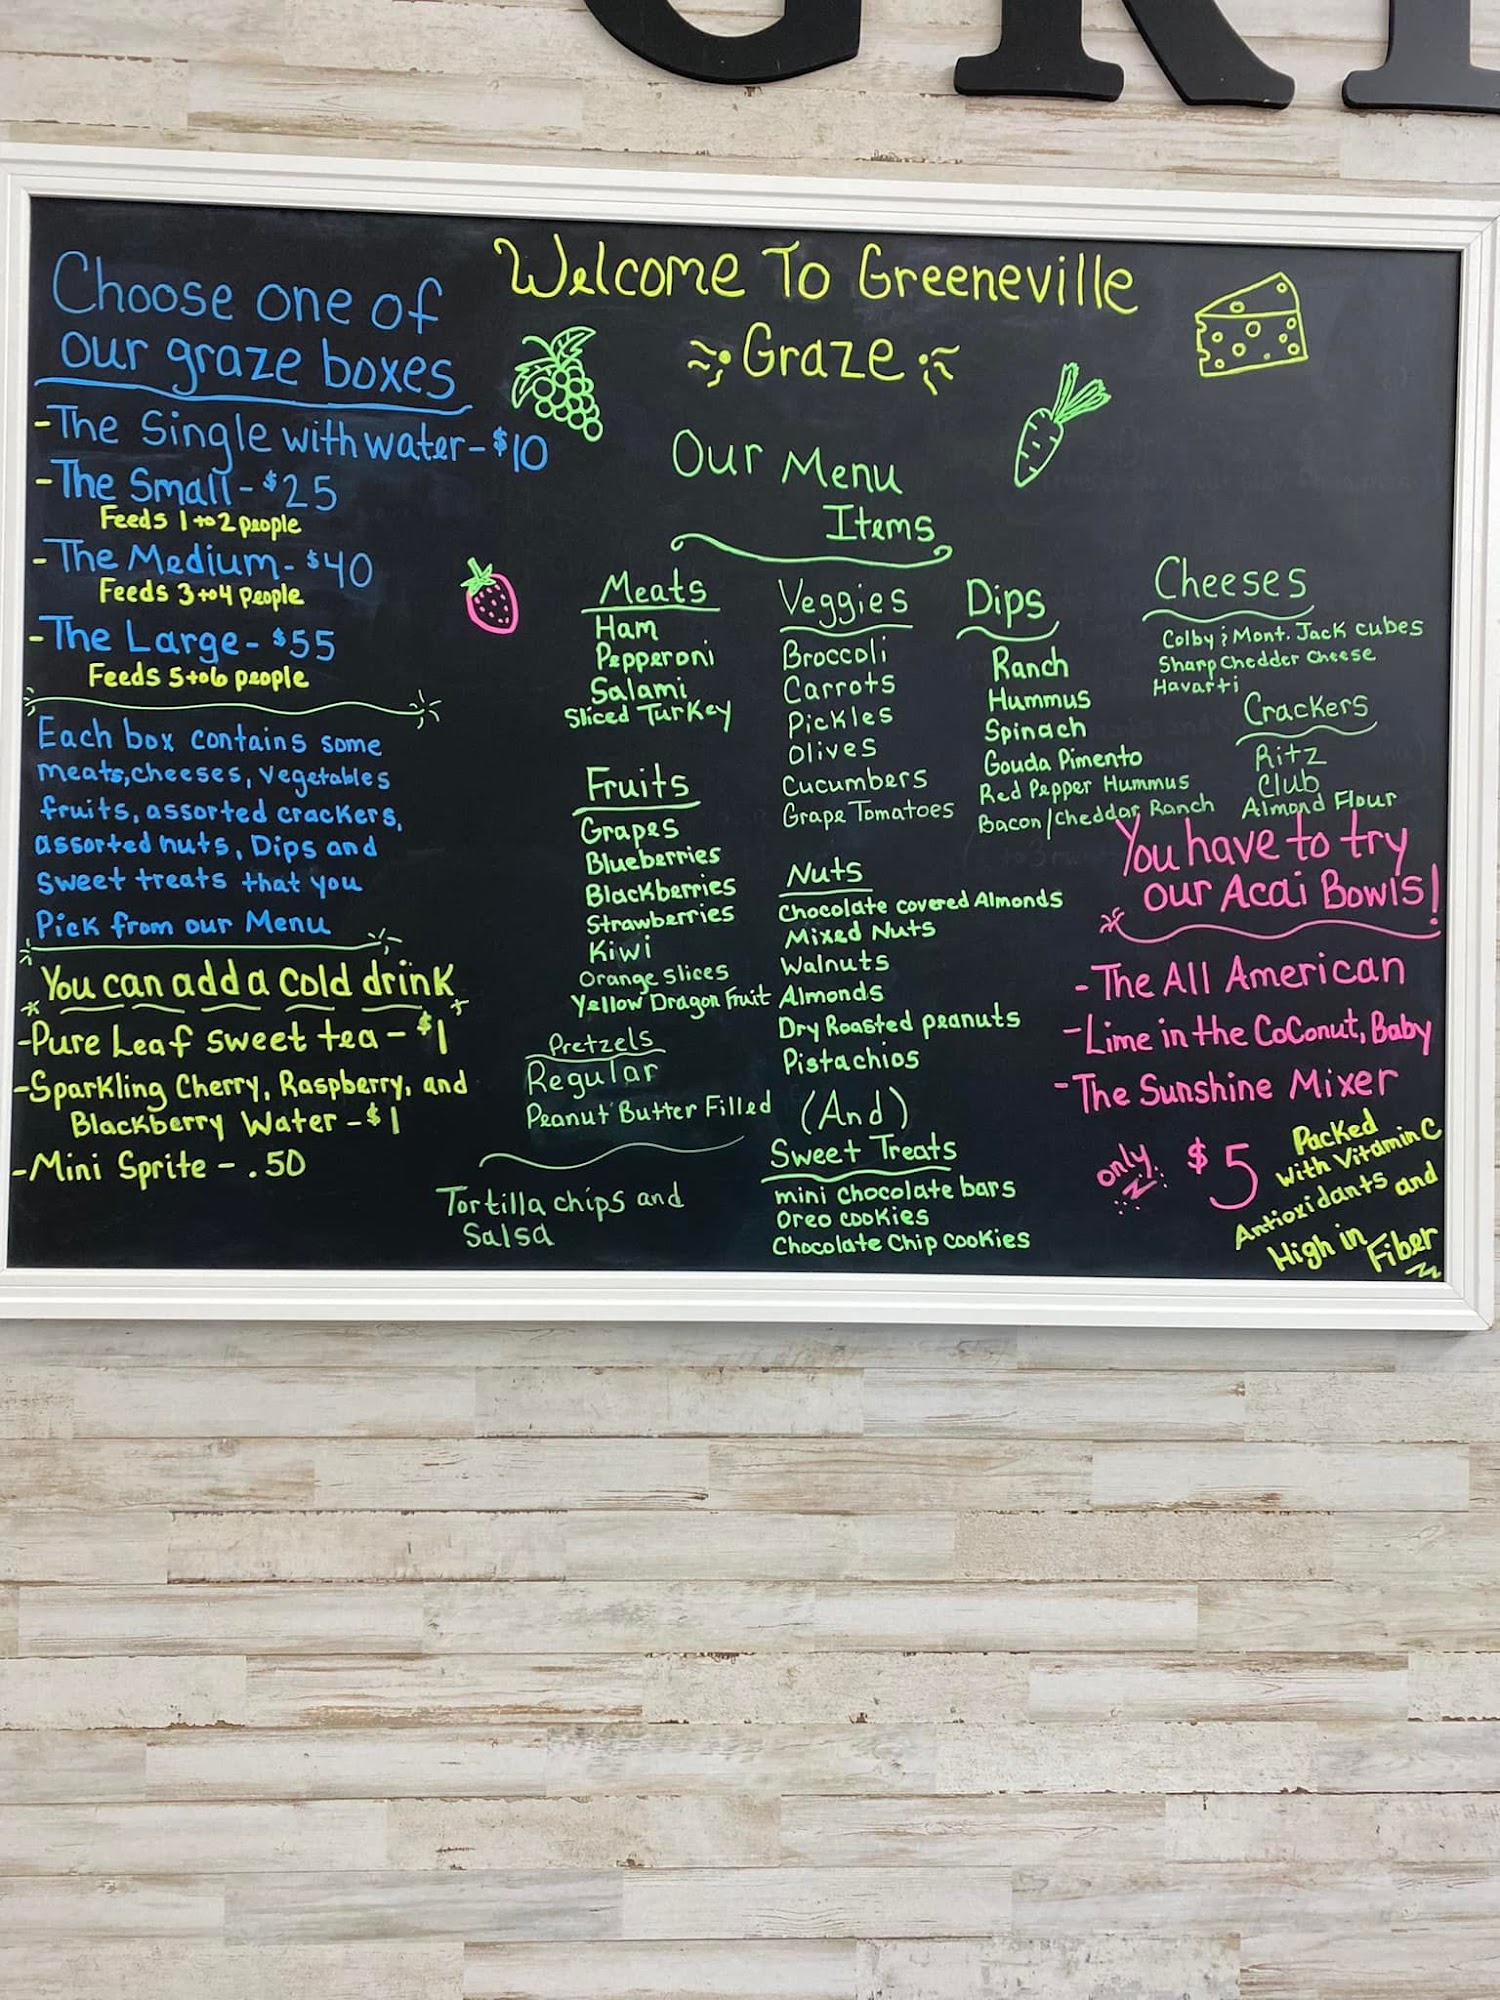 GRE
Welcome To Greeneville
Graze
Choose one of
our graze boxes
-The Single with water-$10
-The Small-$25
Feeds 1 to 2 people
-The Medium-$40
Feeds 3 to 4 people
-The Large-$55
Feeds 5 to 6 people
Each box contains some
meats, cheeses, vegetables
fruits, assorted crackers,
assorted nuts, Dips and
Sweet treats that you
Pick from our Menu
You can add a cold drink
-Pure Leaf sweet tea-$1
-Sparkling Cherry, Raspberry, and
Blackberry Water-$1
-Mini Sprite-.50
Our Menu
Items
Meats
Ham
Pepperoni
Salami
Sliced Turkey
Fruits
Grapes
Blueberries
Blackberries
Strawberries
Kiwi
Orange slices
Yellow Dragon Fruit
Pretzels
Regular
Peanut Butter Filled
Tortilla chips and
Salsa
Veggies
Broccoli
Carrots
Pickles
Olives
Cucumbers
Grape Tomatoes
Nuts
Chocolate covered Almonds
Mixed Nuts
Walnuts
Almonds
Dry Roasted peanuts
Pistachios
(And)
Sweet Treats
mini chocolate bars
Oreo cookies
Chocolate Chip cookies
Dips
Ranch
Hummus
Spinach
Gouda Pimento
Red Pepper Hummus
Bacon/Cheddar Ranch
Cheeses
Colby & Mont. Jack cubes
Sharp Chedder Cheese
Havarti
Crackers
Ritz
Club
Almond Flour
You have to try
our Acai Bowls!
-The All American
-Lime in the CoConut, Baby
-The Sunshine Mixer
only $5
Packed
with Vitamin C
Antioxidants and
High in Fiber